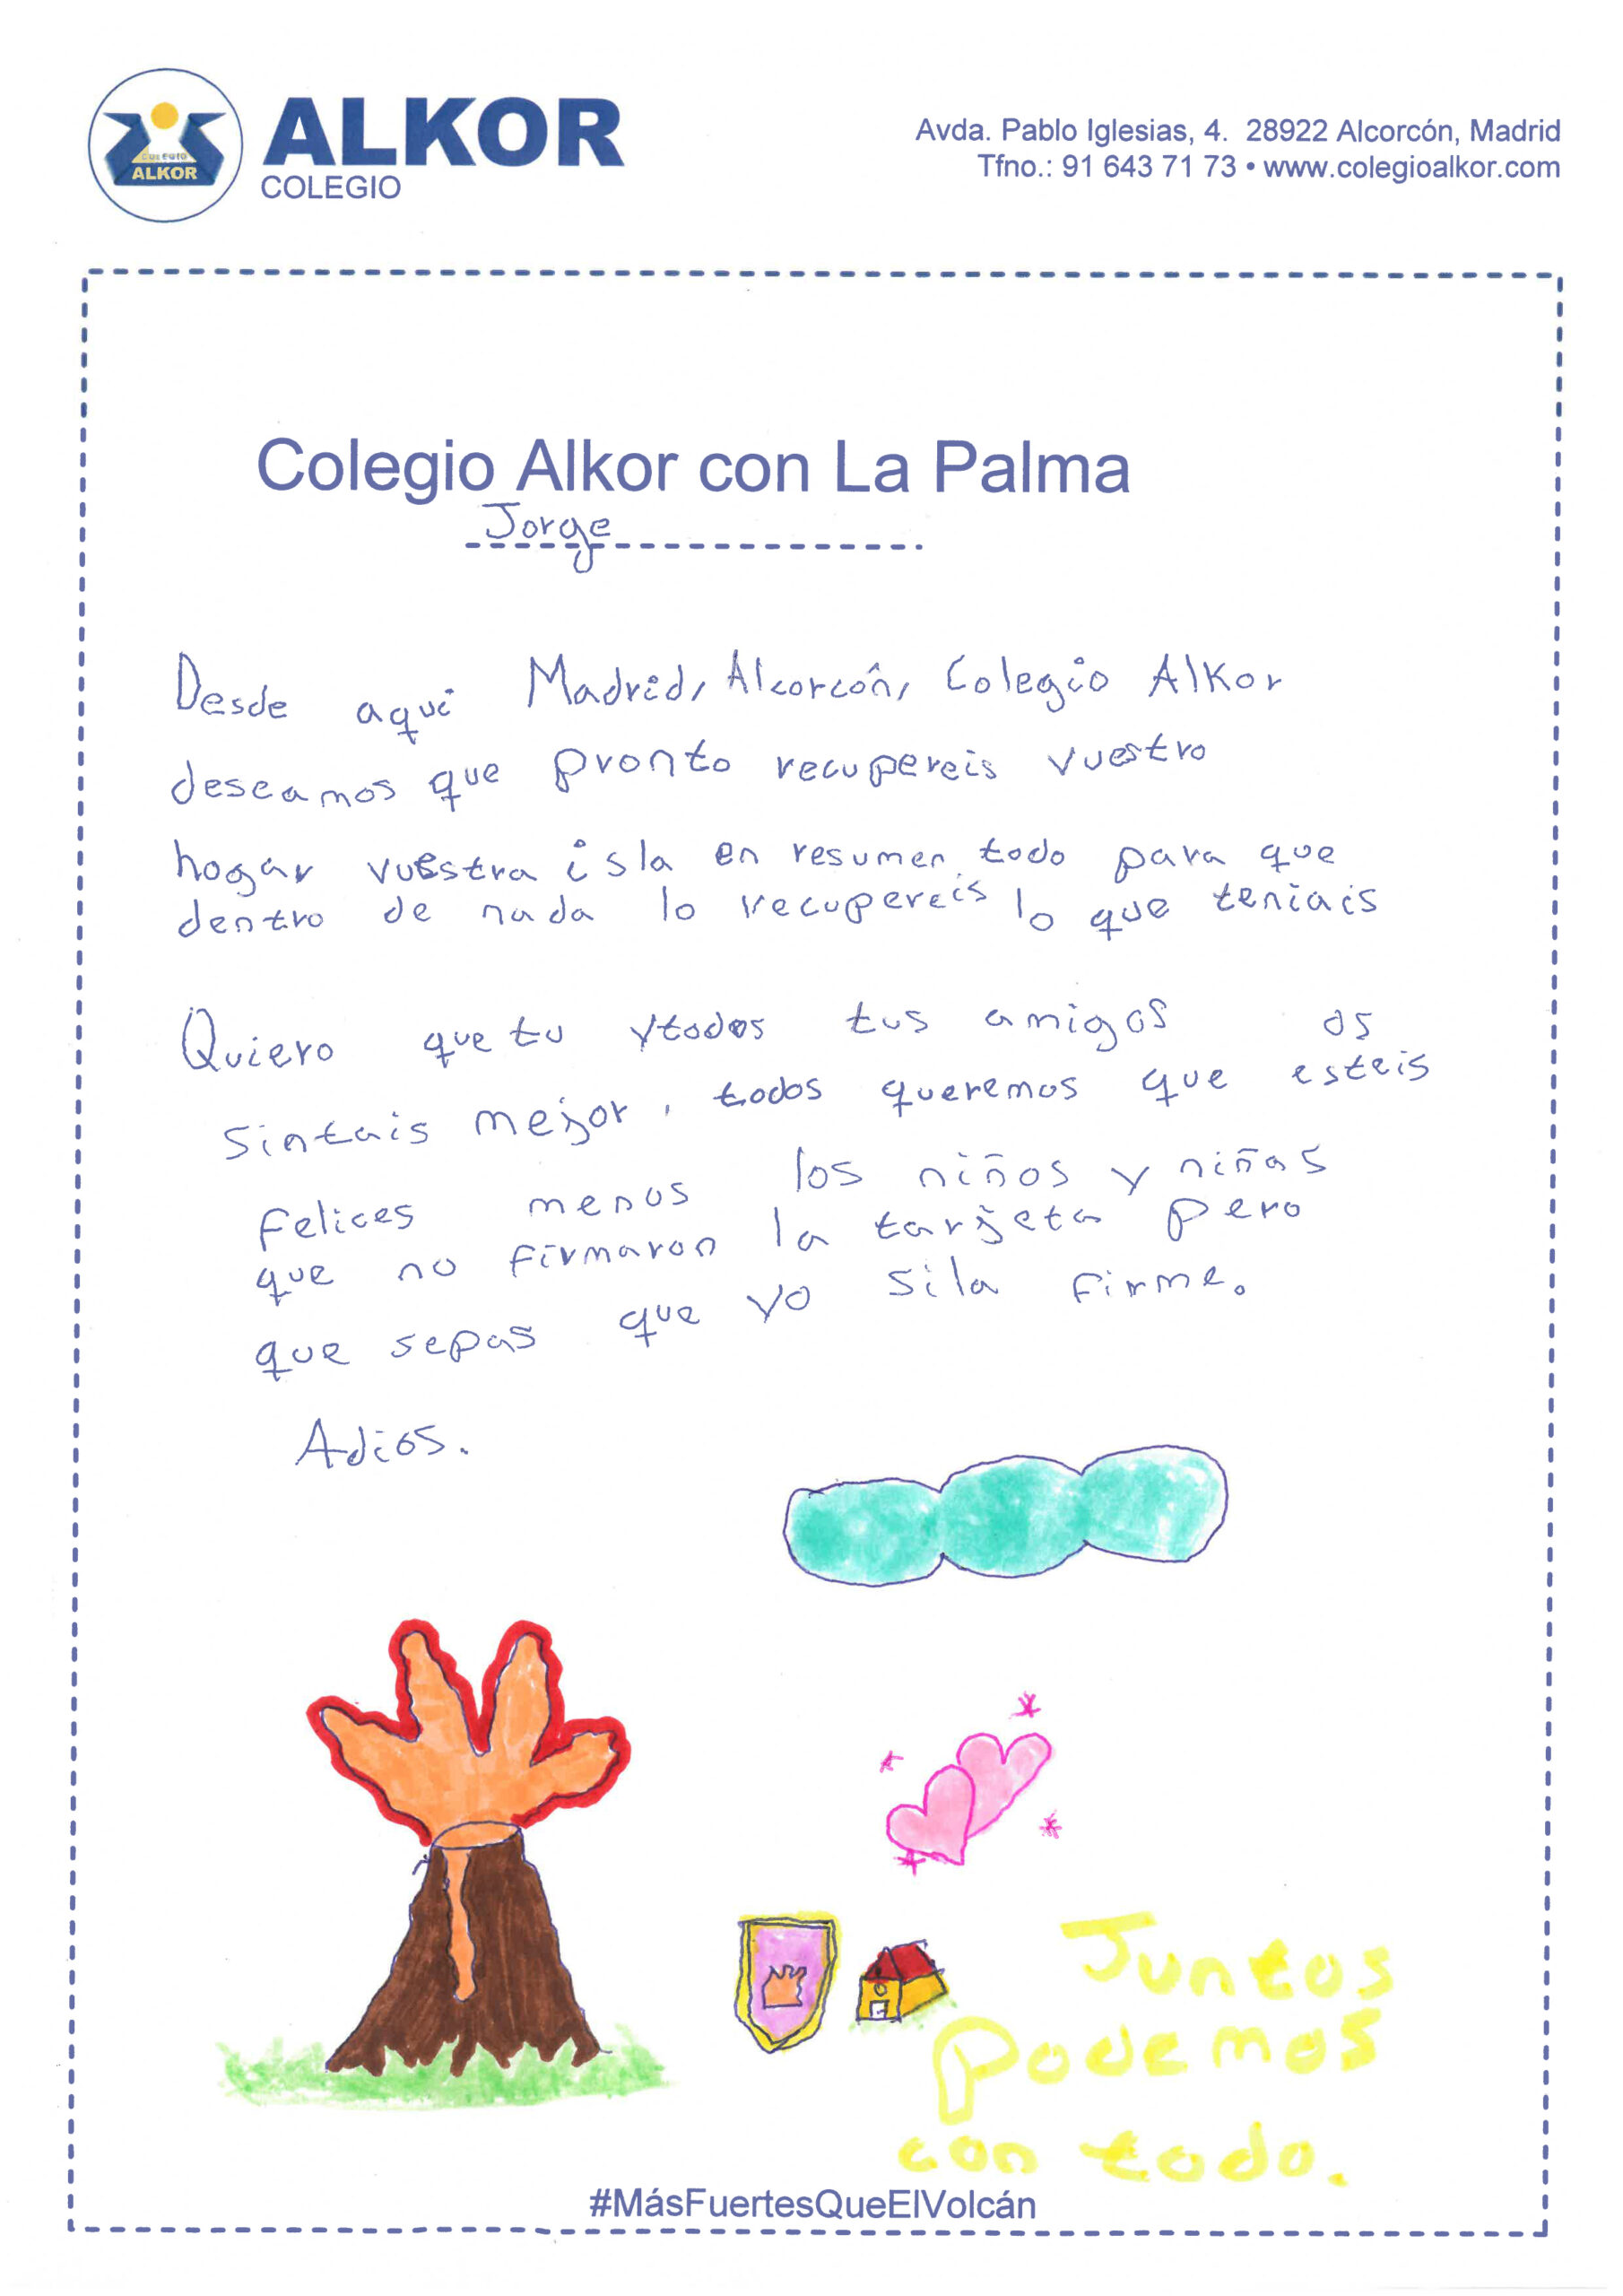 COLEGIO
ALKOR
ALKOR
COLEGIO
Avda. Pablo Iglesias, 4. 28922 Alcorcón, Madrid
Tfno.: 91 643 71 73 • www.colegioalkor.com
Colegio Alkor con La Palma
Jorge
Desde aqui Madrid, Alcorcón, Colegio Alkor
deseamos que pronto recupereis vuestro
hogar vuestra isla en resumen todo para que
dentro de nada lo recupereis lo que teniais
Quiero que tu y todos tus amigos os
sintais mejor, todos queremos que esteis
felices menos los niños y niñas
que no firmaron la tarjeta pero
que sepas que yo si la firme.
Adios.
Juntos
Podemos
con todo.
#MásFuertesQueElVolcán